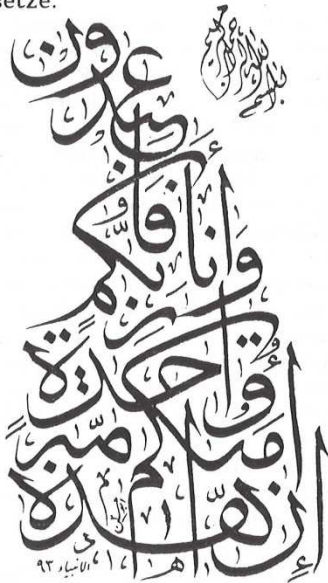 setze.
بسم الله الرحمن الرحيم
إِنَّ هَٰذِهِ
أُمَّتُكُمْ أُمَّةً
وَاحِدَةً
وَأَنَا رَبُّكُمْ
فَاعْبُدُونِ
الأنبياء ٩٣